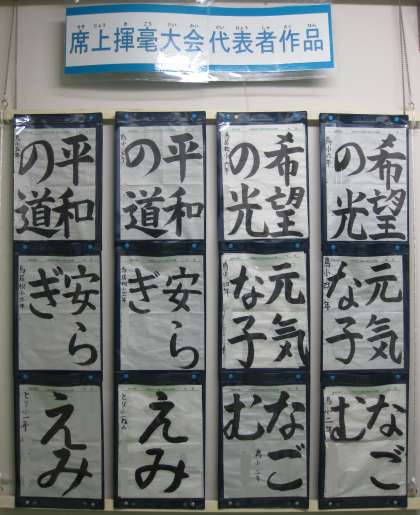 席上揮毫大会代表者作品
せきじょうきごうたいかいだいひょうしゃさくひん
希望
の光
元気
な子
なご
む
希望
の光
元気
な子
なご
む
平和
の道
安ら
ぎ
えみ
平和
の道
安ら
ぎ
えみ